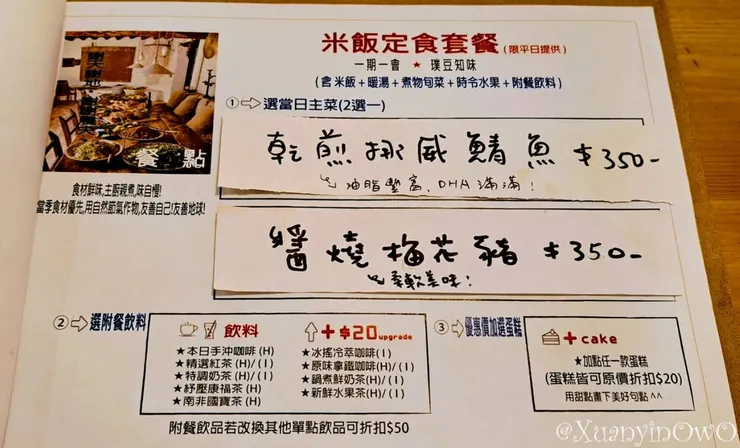 米飯定食套餐(限平日提供)
一期一會 ★ 璞豆知味
(含 米飯+暖湯+煮物旬菜+時令水果+附餐飲料)
①⇨選當日主菜(2選一)
乾煎挪威鯖魚 $350-
油脂豐富、DHA滿滿!
醬燒梅花豬 $350-
柔軟美味!
餐點
食材鮮味,主廚親煮,味自慢!
當季食材優先,用自然節氣作物,友善自己!友善地球!
②⇨選附餐飲料
飲料
★本日手沖咖啡(H)
★精選紅茶(H)/(I)
★特調奶茶(H)/(I)
★紓壓康福茶(H)
★南非國寶茶(H)
+$20upgrade
★冰搖冷萃咖啡(I)
★原味拿鐵咖啡(H)/(I)
★鍋煮鮮奶茶(H)/(I)
★新鮮水果茶(H)/(I)
附餐飲品若改換其他單點飲品可折扣$50
③⇨優惠價加選蛋糕
+cake
★加點任一款蛋糕
(蛋糕皆可原價折扣$20)
用甜點畫下美好句點^^
@XuanyinOwO